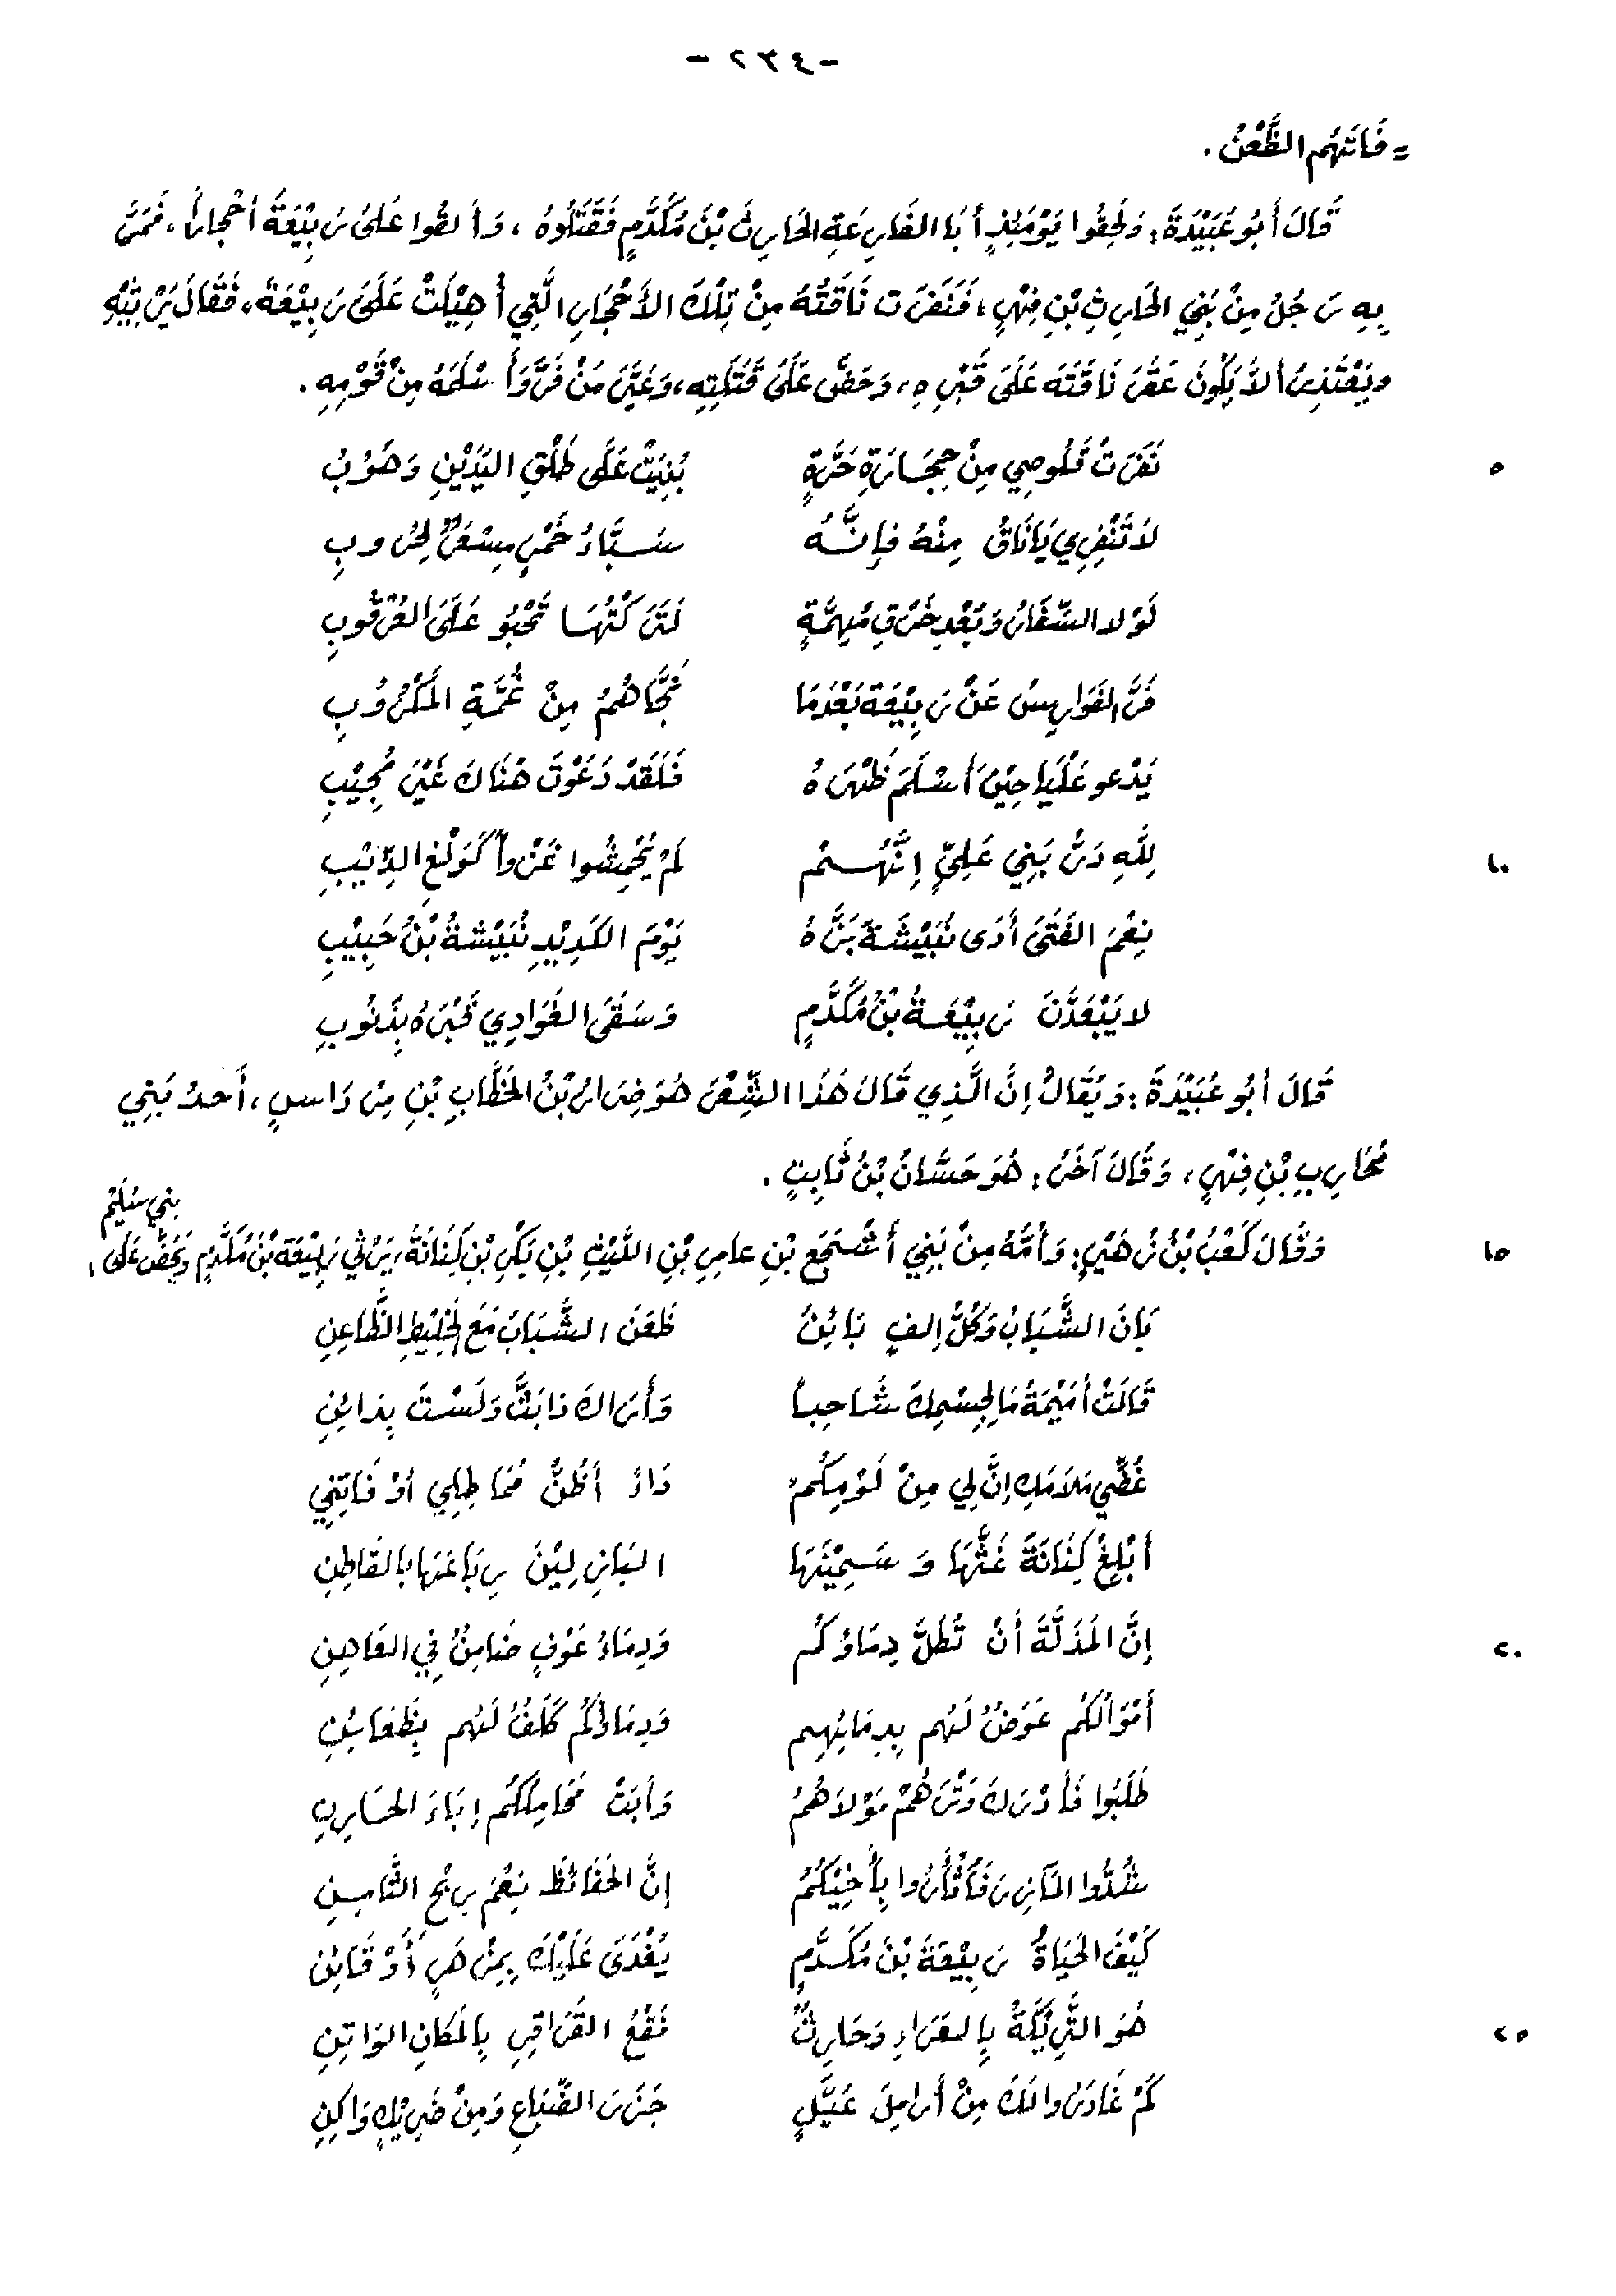 - ٤٣٢ -
= فَاتَهُم الظُّعْنُ .
قَالَ أَبُو عُبَيْدَةَ: وَلَحِقُوا يَوْمَئِذٍ أَبَا الفَارِعَةِ الحَارِثَ بْنَ مُكَدَّمٍ فَقَتَلُوهُ ، وَأَلقُوا عَلَى رَبِيْعَةَ أحْجاراً، فَمَرَّ
بِهِ رَجُلٌ مِنْ بَنِي الحَارِثِ بْنِ فِهْرٍ، فَنَفَرَت نَاقَتُهُ مِنْ تِلْكَ الأَحْجَارِ الَّتِي أُهِيْلَتْ عَلَى رَبِيْعَةَ، فَقَالَ يَرْثِيْهِ
ويَعْتَذِرُ ألاَّ يَكُونَ عَقَرَ نَاقَتَه عَلَى قَبْرِهِ، وَحَضَّ عَلَى قَتَلَتِهِ، وَعَيَّرَ مَنْ فَرَّ وَأَسْلَمَهُ مِنْ قَوْمِهِ .
نَفَرَتْ قَلُوصِي مِنْ حِجَارَةِ حَرَّةٍ بُنِيَتْ عَلَى طَلْقِ اليَدَيْنِ وَهُوبُ ٥
لاَ تَنْفِرِي يَا نَاقُ مِنْهُ فإِنَّهُ سَبَّاءُ خَمْرٍ مِسْعَرٌ لِحُروبِ
لَوْلا السِّفَارُ وَبُعْدِ خَرْقٍ مُهِمَّةٍ لَتَرَكْتُهَا تَحْبُو عَلَى العُرْقُوبِ
فَرَّ الفَوَارِسُ عَنْ رَبِيْعَةَ بَعْدَمَا نَجَّاهُمُ مِنْ غُمَّةِ المَكْرُوبِ
يَدْعو عَلْيَا حِيْنَ أَسْلَمَ ظَهْرَهُ فَلَقَدْ دَعَوْتَ هُنَاكَ غَيْرَ مُجِيْبِ
لِلَّهِ دَرُّ بَنِي عَلِيٍّ إِنَّهُمْ لَمْ يُحْمِشُوا غَزْواً كَوَلْغِ الذِّيْبِ ١٠
نِعْمَ الفَتَى أَدَى نُبَيْشَةَ بَزَّهُ يَوْمَ الكَدِيْدِ نُبَيْشَةُ بْنُ حَبِيْبِ
لا يَبْعَدَنَّ رَبِيْعَةُ بْنُ مُكَدَّمٍ وَسَقَى الغَوَادِي قَبْرَهُ بِذَنُوبِ
قَالَ أَبُو عُبَيْدَةَ: وَيُقَالُ إِنَّ الَّذِي قَالَ هَذَا الشِّعْرَ هُوَ ضِرَارُ بْنُ الخَطَّابِ بْنِ مِرْدَاسٍ، أَحدُ بَنِي
مُحَارِبِ بْنِ فِهْرٍ، وَقَالَ آخَرُ: هُوَ حَسَّانُ بْنُ ثَابِتٍ .
وَقَالَ كَعْبُ بْنُ زُهَيْرٍ: وَأُمُّهُ مِنْ بَنِي أَشْجَعَ بْنِ عَامِرِ بْنِ اللَّيْثِ بْنِ بَكْرِ بْنِ كِنَانَةَ، يَرْثِي رَبِيْعَةَ بْنَ مُكَدَّمٍ وَيَحُضُّ عَلَى بني سُلَيْم: ١٥
بَانَ الشَّبَابُ وَكُلُّ إِلفٍ بَائِنُ ظَعَنَ الشَّبَابُ مَعَ الخَلِيْطِ الظَّاعِنِ
قَالَتْ أُمَيْمَةُ مَا لِجِسْمِكَ شَاحِباً وَأَرَاكَ ذَا بَثٍّ وَلَسْتَ بِدَائِنِ
غُضِّي مَلاَمَكِ إِنَّ لِي مِنْ لَوْمِكُمْ دَاءً أَظُنُّ مُمَاطِلِي أَوْ فَاتِنِي
أَبْلِغْ كِنَانَةَ غَثَّهَا وَ سَمِيْنَهَا البَاذِلِيْنَ رِبَاعَهَا بِالقَاطِنِ
إِنَّ المَذَلَّةَ أَنْ تُطَلَّ دِمَاؤكُم وَدِمَاءُ عَوْفٍ ضَامِنٌ فِي العَاهِنِ ٢٠
أَمْوَالُكُم عَوَضٌ لَهُم بِدِمَائِهِم وَدِمَاؤُكُم كَلَفٌ لَهُم بِظَعَائِنِ
طَلَبُوا فَأَدْرَكَ وَتْرَهُمْ مَوْلاَهُمُ وَأَبَتْ مَحَامِلُكُم إِبَاءَ الحَارِنِ
شُدُّوا المَآزِرَ فَأثْأَرُوا بِأَخِيْكُمُ إِنَّ الحَفَائظَ نِعْمَ رِبْحِ الثَّامِنِ
كَيْفَ الحَيَاةُ رَبِيْعَةَ بْنَ مُكَدَّمٍ يُغْدَى عَلَيْكَ بِمِزْهَرٍ أَوْ قَائِنِ
هُوَ التَّرِيْكَةُ بِالعَرَاءِ وَحَارِثٌ فَقْعُ القَرَاقِرِ بِالمَكَانِ الوَاتِنِ ٢٥
كَمْ غَادَرُوا لَكَ مِنْ أَرَامِلَ عُيَّلٍ جَزَرَ الضِّبَاعِ وَمِنْ ضَرِيْكٍ وَاكِنِ